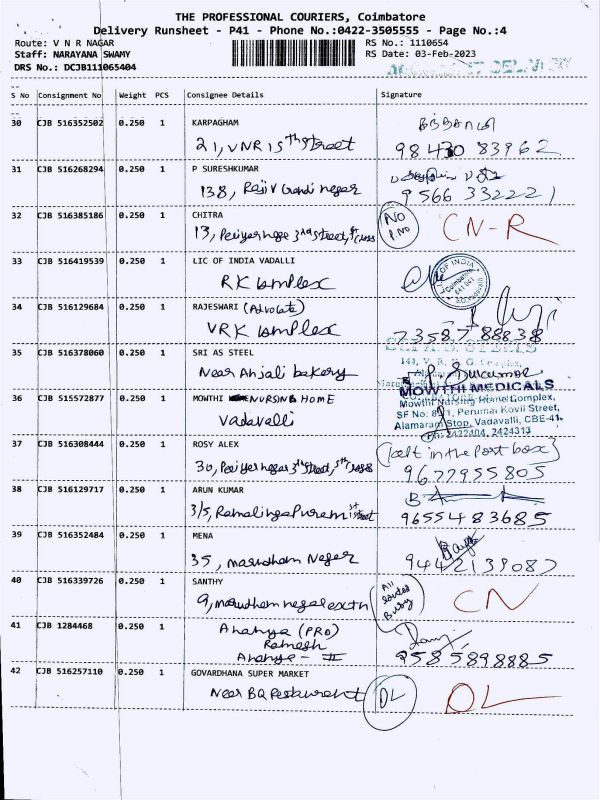 THE PROFESSIONAL COURIERS, Coimbatore
Delivery Runsheet - P41 - Phone No.:0422-3505555 - Page No.:4
Route: V N R NAGAR
Staff: NARAYANA SWAMY
DRS No.: DCJB111065404
RS No.: 1110654
RS Date: 03-Feb-2023
S No Consignment No Weight PCS Consignee Details Signature
30 CJB 516352502 0.250 1 KARPAGHAM
21, VNR 15th Street 98430 83962
31 CJB 516268294 0.250 1 P SURESHKUMAR
138, Rajiv Gandi nagar 9566 332221
32 CJB 516385186 0.250 1 CHITRA NO P.NO CN-R
13, Periyar nagar 3rd Street,
33 CJB 516419539 0.250 1 LIC OF INDIA VADALLI
RK Complex
34 CJB 516129684 0.250 1 RAJESWARI (Advocate)
VRK Complex 73587 88838
35 CJB 516378060 0.250 1 SRI AS STEEL
Near Anjali bakery
36 CJB 515572877 0.250 1 MOWTHI NURSING HOME
Vadavalli
MOWTHI MEDICALS
Mowthi Nursing Home Complex,
Perumal Kovil Street,
Alamaram Stop, Vadavalli, CBE-41.
2422404, 2424313
37 CJB 516308444 0.250 1 ROSY ALEX (Left in the Post box)
30, Periyar nagar 3rd Street, 9677955805
38 CJB 516129717 0.250 1 ARUN KUMAR
3/5, Ramalinga Puram 1st Street 96554 83685
39 CJB 516352484 0.250 1 MENA
35, marudham Nagar 9442139087
40 CJB 516339726 0.250 1 SANTHY CN
9, marudham nagar extn
41 CJB 1284468 0.250 1 Ananya (PRO)
Ramesh
Ananya - II 9585898885
42 CJB 516257110 0.250 1 GOVARDHANA SUPER MARKET
Near BQ Restaurant DL DL